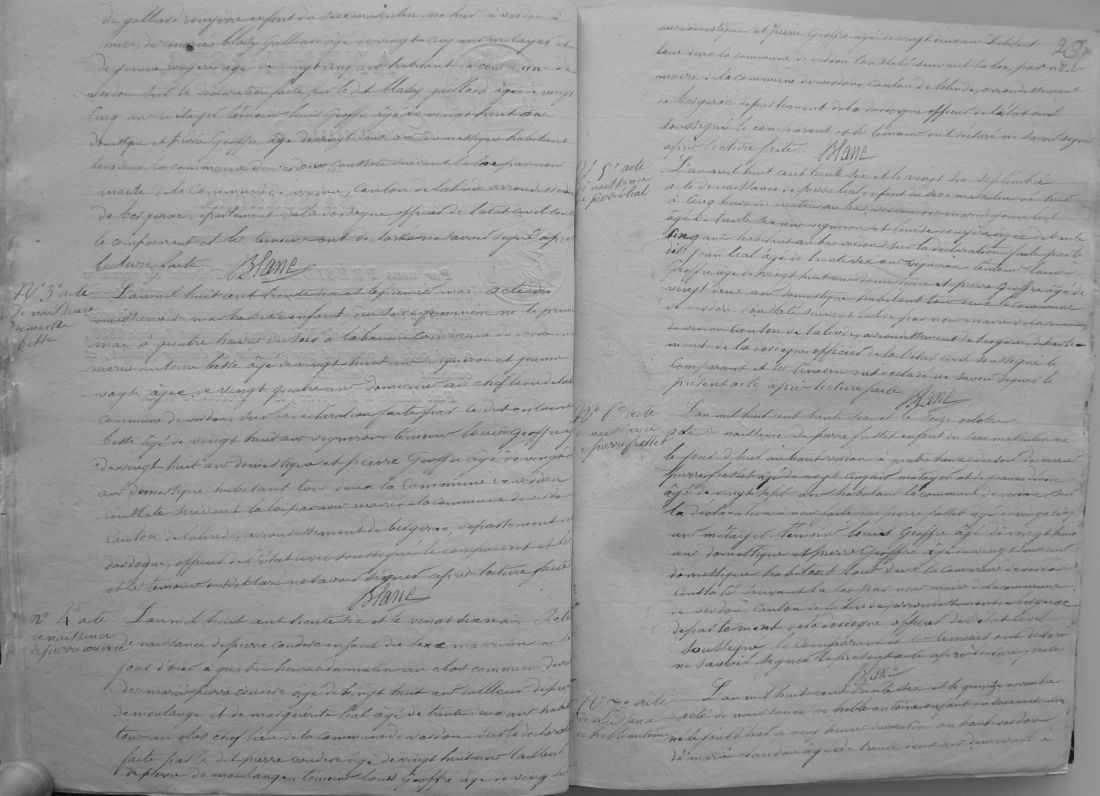 de galliard rouyere enfant du sexe masculin, né hier à verdon à
midi, de mariés blaly Galliard âgé de vingt cinq ans métayer et
de jeanne rouyere âgé de vingt cinq ans habitant la commune de
verdon sur la déclaration faite par le dit blaly gaillard âgé de vingt
cinq ans métayer temoin louis Geoffre âgé de vingt huit ans
domestique et pierre Geoffre âgé de vingt deux ans domestique habitant
tous deux la commune de verdon constaté suivant la loi par nous
maire de la Commune de verdon, Canton de lalinde arrondissement
de bergerac, departement de la dordogne officier de l'état civil sous
le comparant et les temoin ont declaré ne savoir signé après
lecture faite Blanc
N° 3e acte
de naissance
de marthe
bette
L'an mil huit cent trente six et le premier mai acte de
naissance de marthe bette enfant du sexe feminin né le premier
mai à quatre heures du soir à la commune de verdon
mariés antoine bette âgé de vingt huit ans vigneron et jeanne
âgée de vingt quatre ans demeurant au chef lieu de la
commune de verdon, sur la declaration faite par le dit antoine
bette âgé de vingt huit ans vigneron, temoin louis Geoffre
de vingt huit ans domestique et pierre Geoffre âgé de vingt d
ans domestique habitant tous deux la Commune de verdon
constaté suivant la loi par nous maire de la commune de verdon
Canton de lalinde, arrondissement de bergerac, departement de
dordogne, officier de l'état civil soussigné le comparant et le
et le temoin ont déclaré ne savoir signer après lecture faite
Blanc
n° 4e acte
de naissance
de pierre couderc
L'an mil huit cent trente six et le vingt dix mai Acte
de naissance de pierre couderc enfant du sexe masculin né le
jour d'hier à quatre heures du matin au clos commun de verdon
des mariés pierre couderc âgé de vingt huit ans tailleur de pierre
de moulange et de marguerite lial âgé de trente deux ans habi
tous au clos chef lieu de la commune de verdon sur la declaration
faite par le dit pierre couderc âgé de vingt huit ans tailleur
de pierre de moulange temoin louis Geoffre âgé de vingt huit
28
ans domestique et pierre Geoffre âgé de vingt deux ans habitant
tous deux la commune de verdon constaté suivant la loi, par nous
maire de la commune de verdon, canton de lalinde, arrondissement
de bergerac departement de la dordogne officier de l'état civil
soussigné le comparant et le temoin ont declaré ne savoir signer
après lecture faite. Blanc
N° 5e acte
de naissance
de pierre lial
L'an mil huit cent trente six et le vingt six septembre
acte de naissance de pierre lial enfant du sexe masculin né hier
à cinq heures du matin au bas verdon de mariés jean lial
âgé de trente six ans vigneron et
cinq ans habitant au bas verdon sur la declaration faite par le
dit jean lial âgé de trente six ans vigneron temoin louis
Geoffre âgé de vingt huit ans domestique et pierre Geoffre âgé de
vingt deux ans domestique habitant tous deux la commune
de verdon constaté suivant la loi par nous maire de la commune
de verdon canton de lalinde, arrondissement de bergerac, departe
ment de la dordogne officier de l'état civil soussigné le
comparant et le temoin ont declaré ne savoir signer le
présent acte après lecture faite Blanc
N° 6e acte
de naissance
de pierre frettet
L'an mil huit cent trente six et le seize octobre
acte de naissance de pierre frettet enfant du sexe masculin né
le jour d'hier au haut verdon à quatre heures du soir de mariés
pierre frettet âgé de vingt cinq ans métayer et de jeanne
âgée de vingt sept ans habitant la commune de verdon sur
la declaration à nous faite par pierre frettet âgé de vingt cinq
ans métayer temoin louis Geoffre âgé de vingt huit
ans domestique et pierre Geoffre âgé de vingt deux ans
domestique habitant tous deux la commune de verdon
constaté suivant la loi par nous maire de la commune
de verdon, Canton de lalinde, arrondissement de bergerac
departement de la dordogne officier de l'état civil
soussigné le comparant et le temoin ont déclaré
ne savoir signer le present acte après lecture faite
Blanc
N° 7e acte
de naissance
de heble antoine
L'an mil huit cent trente six et le quinze novembre
acte de naissance de heble antoine enfant du sexe masculin
né le jour d'hier à neuf heures du matin au haut verdon
de marie âgée de trente deux ans demeurant à